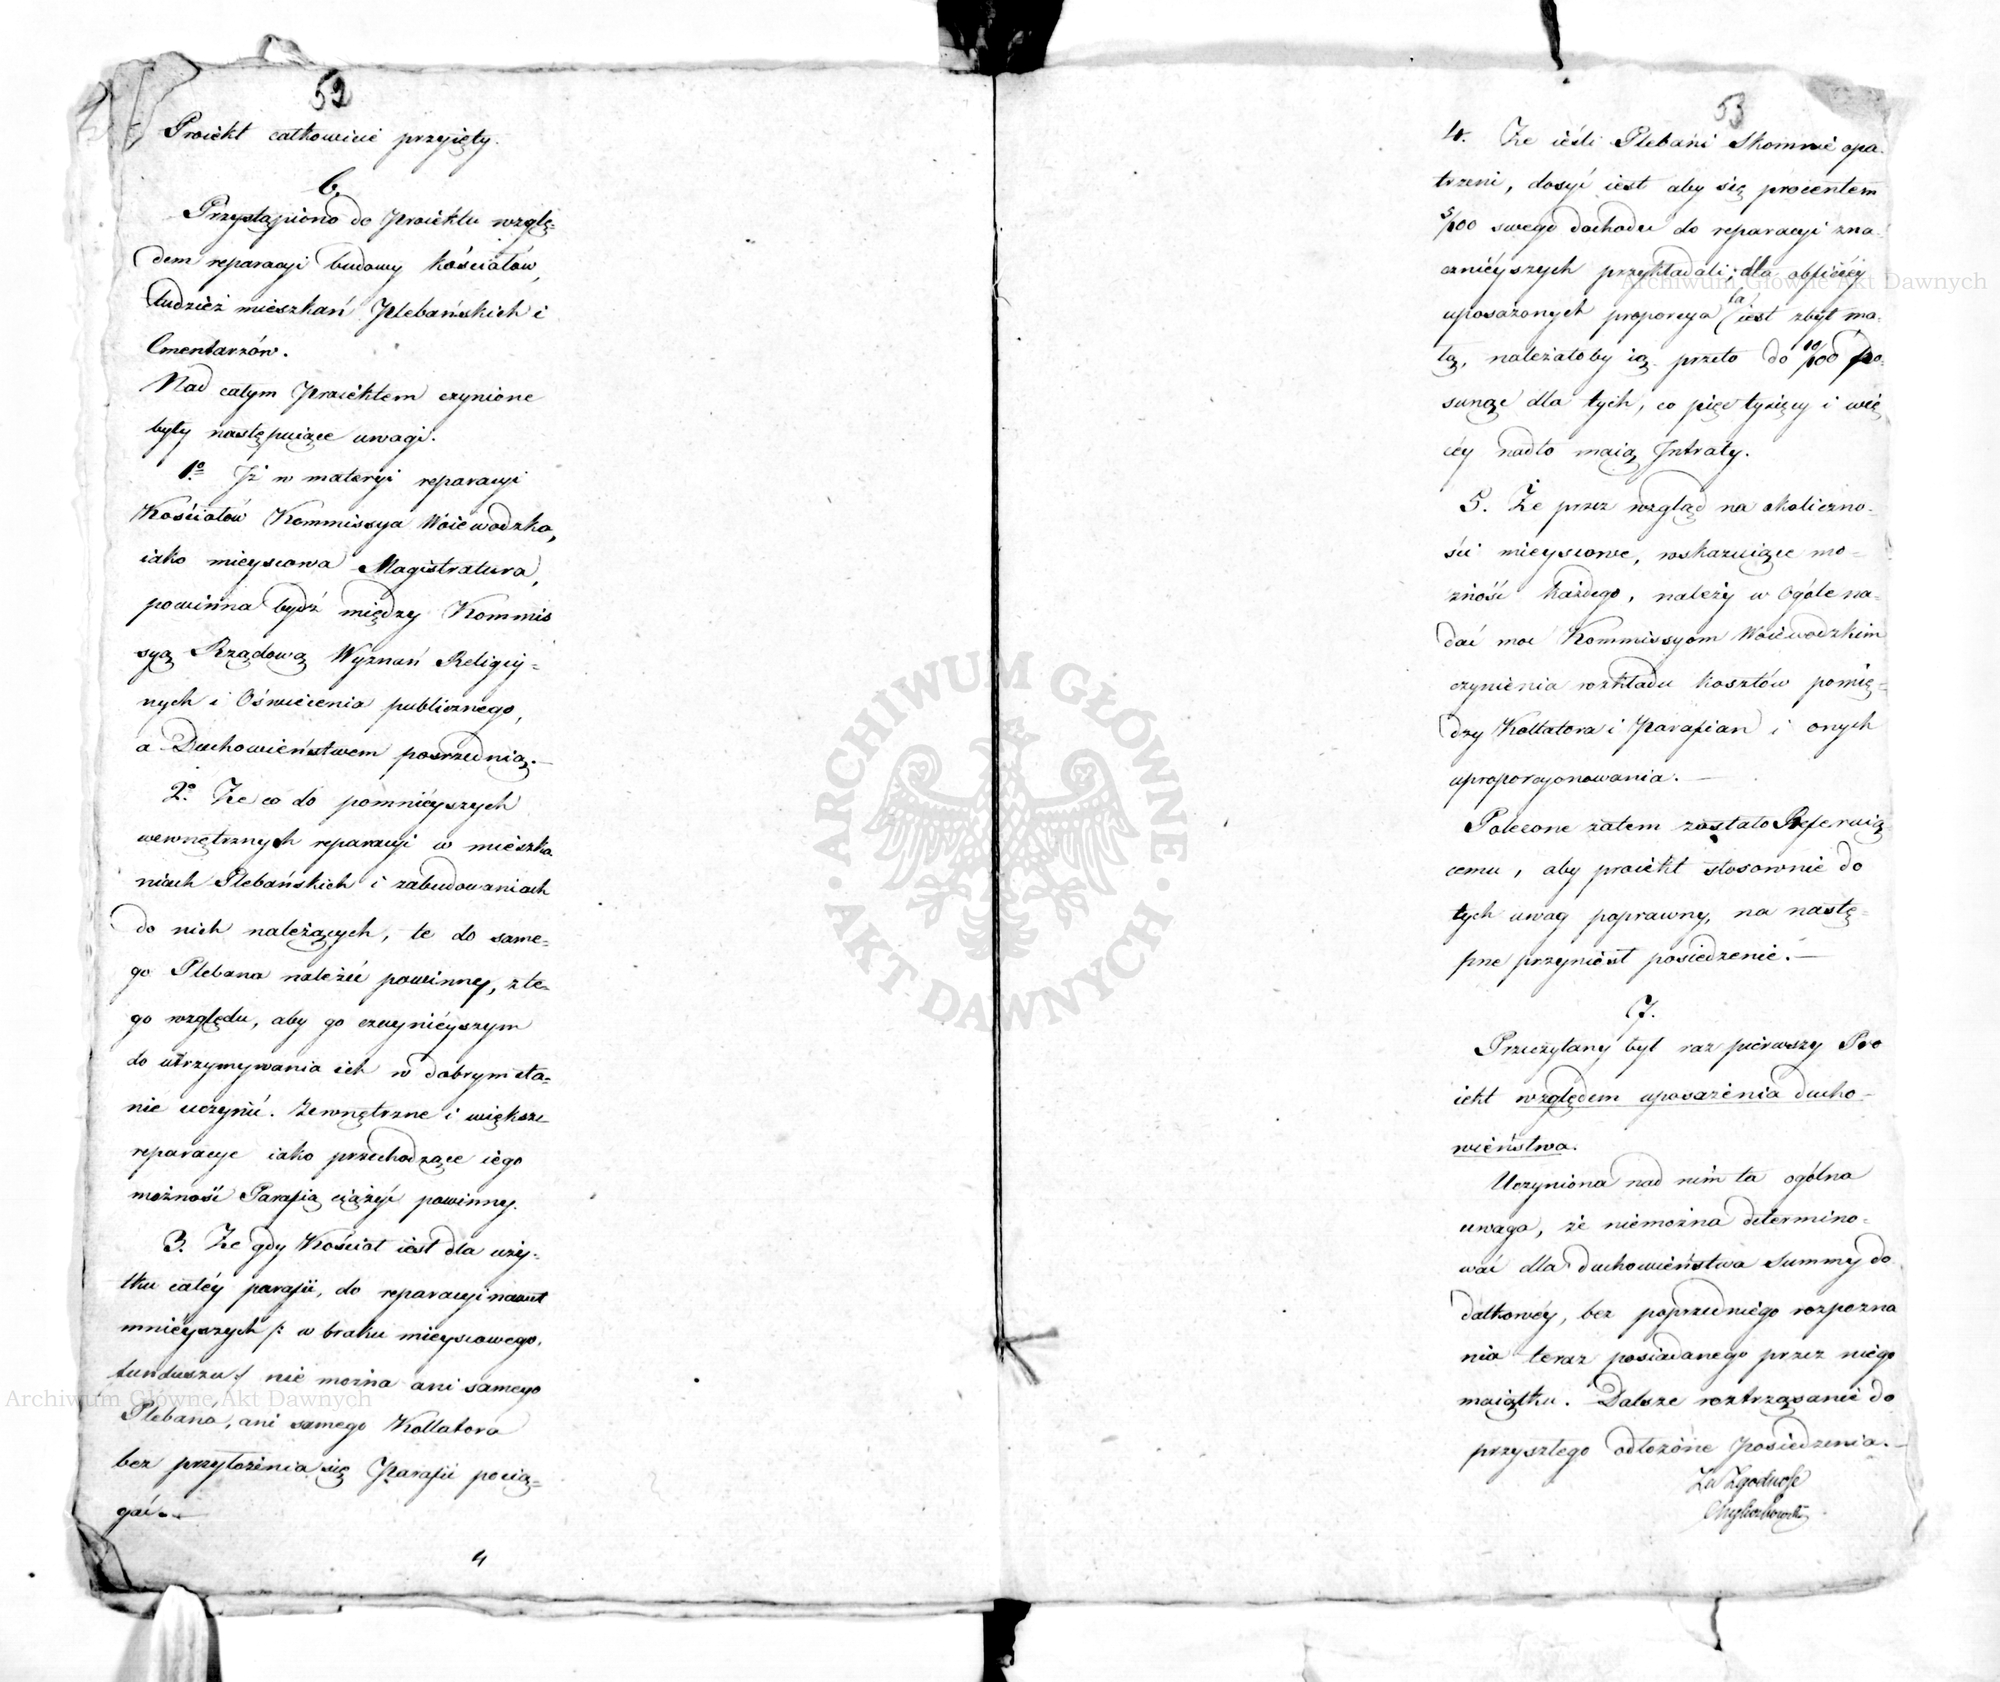 52
Proiekt całkowicie przyięty.
6.
Przystąpiono do Proiektu wzglę-
dem reparacyi budowy Kościołów,
tudzież mieszkań Plebańskich i
Cmentarzów.
Nad całym Proiektem czynione
były następuiące uwagi.
1o. Iż w materyi reparacyi
Kościołów Kommissya Woiewodzka,
iako mieyscowa Magistratura,
powinna bydź między Kommis
syą Rządową Wyznań Religiy-
nych i Oświecenia publicznego,
a Duchowieństwem pośrzednią.
2o. Że co do pomnieyszych
wewnętrznych reparacyi w mieszka
niach Plebańskich i zabudowaniach
do nich należących, te do same-
go Plebana należeć powinny, z te-
go względu, aby go czuynieyszym
do utrzymywania ich w dobrym sta-
nie uczynić. Zewnętrzne i większe
reparacye iako przechodzące iego
możność Parafią ciążyć powinny.
3. Że gdy Kościoł iest dla uży-
tku całéy parafii, do reparacyi nawet
mnieyszych /: w braku mieyscowego
funduszu :/ nie można ani samego
Plebana, ani samego Kollatora
bez przyłożenia się Parafii pocią-
gać. —
4
53
4. Że ieśli Plebani skomnie opa-
trzeni, dosyć iest aby się procentem
5/100 swego dochodu do reparacyi zna-
cznieyszych przykładali; dla obficiéy
uposażonych proporcya ta iest zbyt ma-
łą, należałoby ią przeto do 10/100 po-
sunąć dla tych, co pięć tysięcy i wię
céy nadto maią Intraty.
5. Że przez wzgląd na okoliczno-
ści mieyscowe, wskazuiące mo-
żność każdego, należy w ogóle na-
dać moc Kommissyom Woiewodzkim
czynienia rozkładu kosztów pomię-
dzy Kollatora i Parafian i onych
uproporcyonowania. —
Polecone zatem zostało Referuią
cemu, aby proiekt stosownie do
tych uwag poprawny, na nastę-
pne przyniósł posiedzenie. —
7.
Przeczytany był raz pierwszy Pro
iekt względem uposażenia ducho-
wieństwa.
Uczyniona nad nim ta ogólna
uwaga, że niemożna determino-
wać dla duchowieństwa Summy do
datkowéy, bez poprzedniego rozpozna
nia teraz posiadanego przez niego
maiątku. Dalsze roztrząsanie do
przyszłego odłożone Posiedzenia. —
Za Zgodność
ARCHIWUM GŁÓWNE
· AKT DAWNYCH ·
Archiwum Główne Akt Dawnych
Archiwum Główne Akt Dawnych